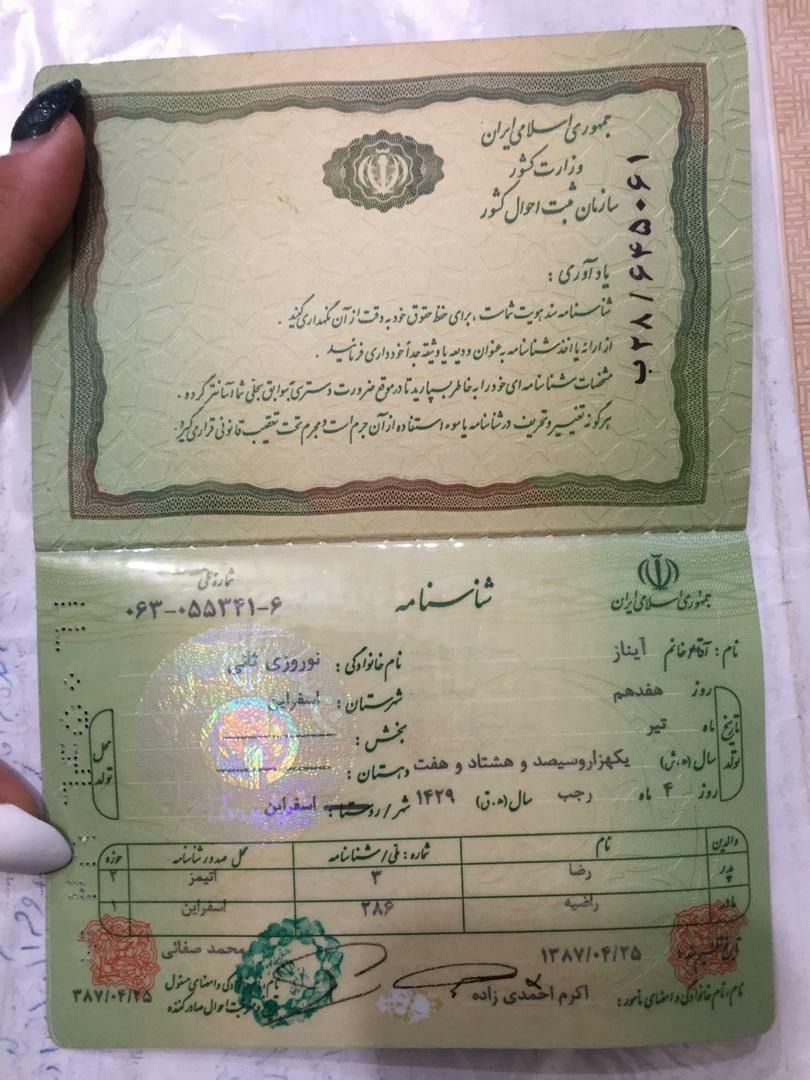 جمهوری اسلامی ایران
وزارت کشور
سازمان ثبت احوال کشور
ب۲۸/۶۴۵۰۶۱
یادآوری :
شناسنامه سند هویت شماست ، برای حفظ حقوق خود به دقت از آن نگهداری کنید .
از ارائه یا اخذ شناسنامه به عنوان ودیعه یا وثیقه جداً خودداری فرمائید .
مشخصات شناسنامه ای خود را به خاطر بسپارید تا در موقع ضرورت دسترسی به سوابق سجلی شما آسانتر گردد .
هرگونه تغییر و تحریف در شناسنامه یا سوء استفاده از آن جرم است و مجرم تحت تعقیب قانونی قرار می گیرد .
جمهوری اسلامی ایران
شناسنامه
شماره ملی
۰۶۳-۰۵۵۳۴۱-۶
نام : آقا/خانم آیناز
نام خانوادگی : نوروزی ثانی
تاریخ تولد
روز هفدهم
ماه تیر
سال (ه.ش) یکهزار و سیصد و هشتاد و هفت
روز ۴ ماه رجب سال (ه.ق) ۱۴۲۹
محل تولد
شهرستان : اسفراین
بخش :
دهستان :
شهر / روستا : اسفراین
والدین نام شماره : ملی / شناسنامه محل صدور شناسنامه حوزه
پدر رضا ۳ اتیمز ۲
مادر راضیه ۲۸۶ اسفراین ۱
تاریخ تنظیم : ۱۳۸۷/۰۴/۲۵
نام ، نام خانوادگی و امضای مأمور : اکرم احمدی زاده
محمد صفائی
نام ، نام خانوادگی و امضای مسئول
ثبت احوال صادرکننده
۳۸۷/۰۴/۲۵